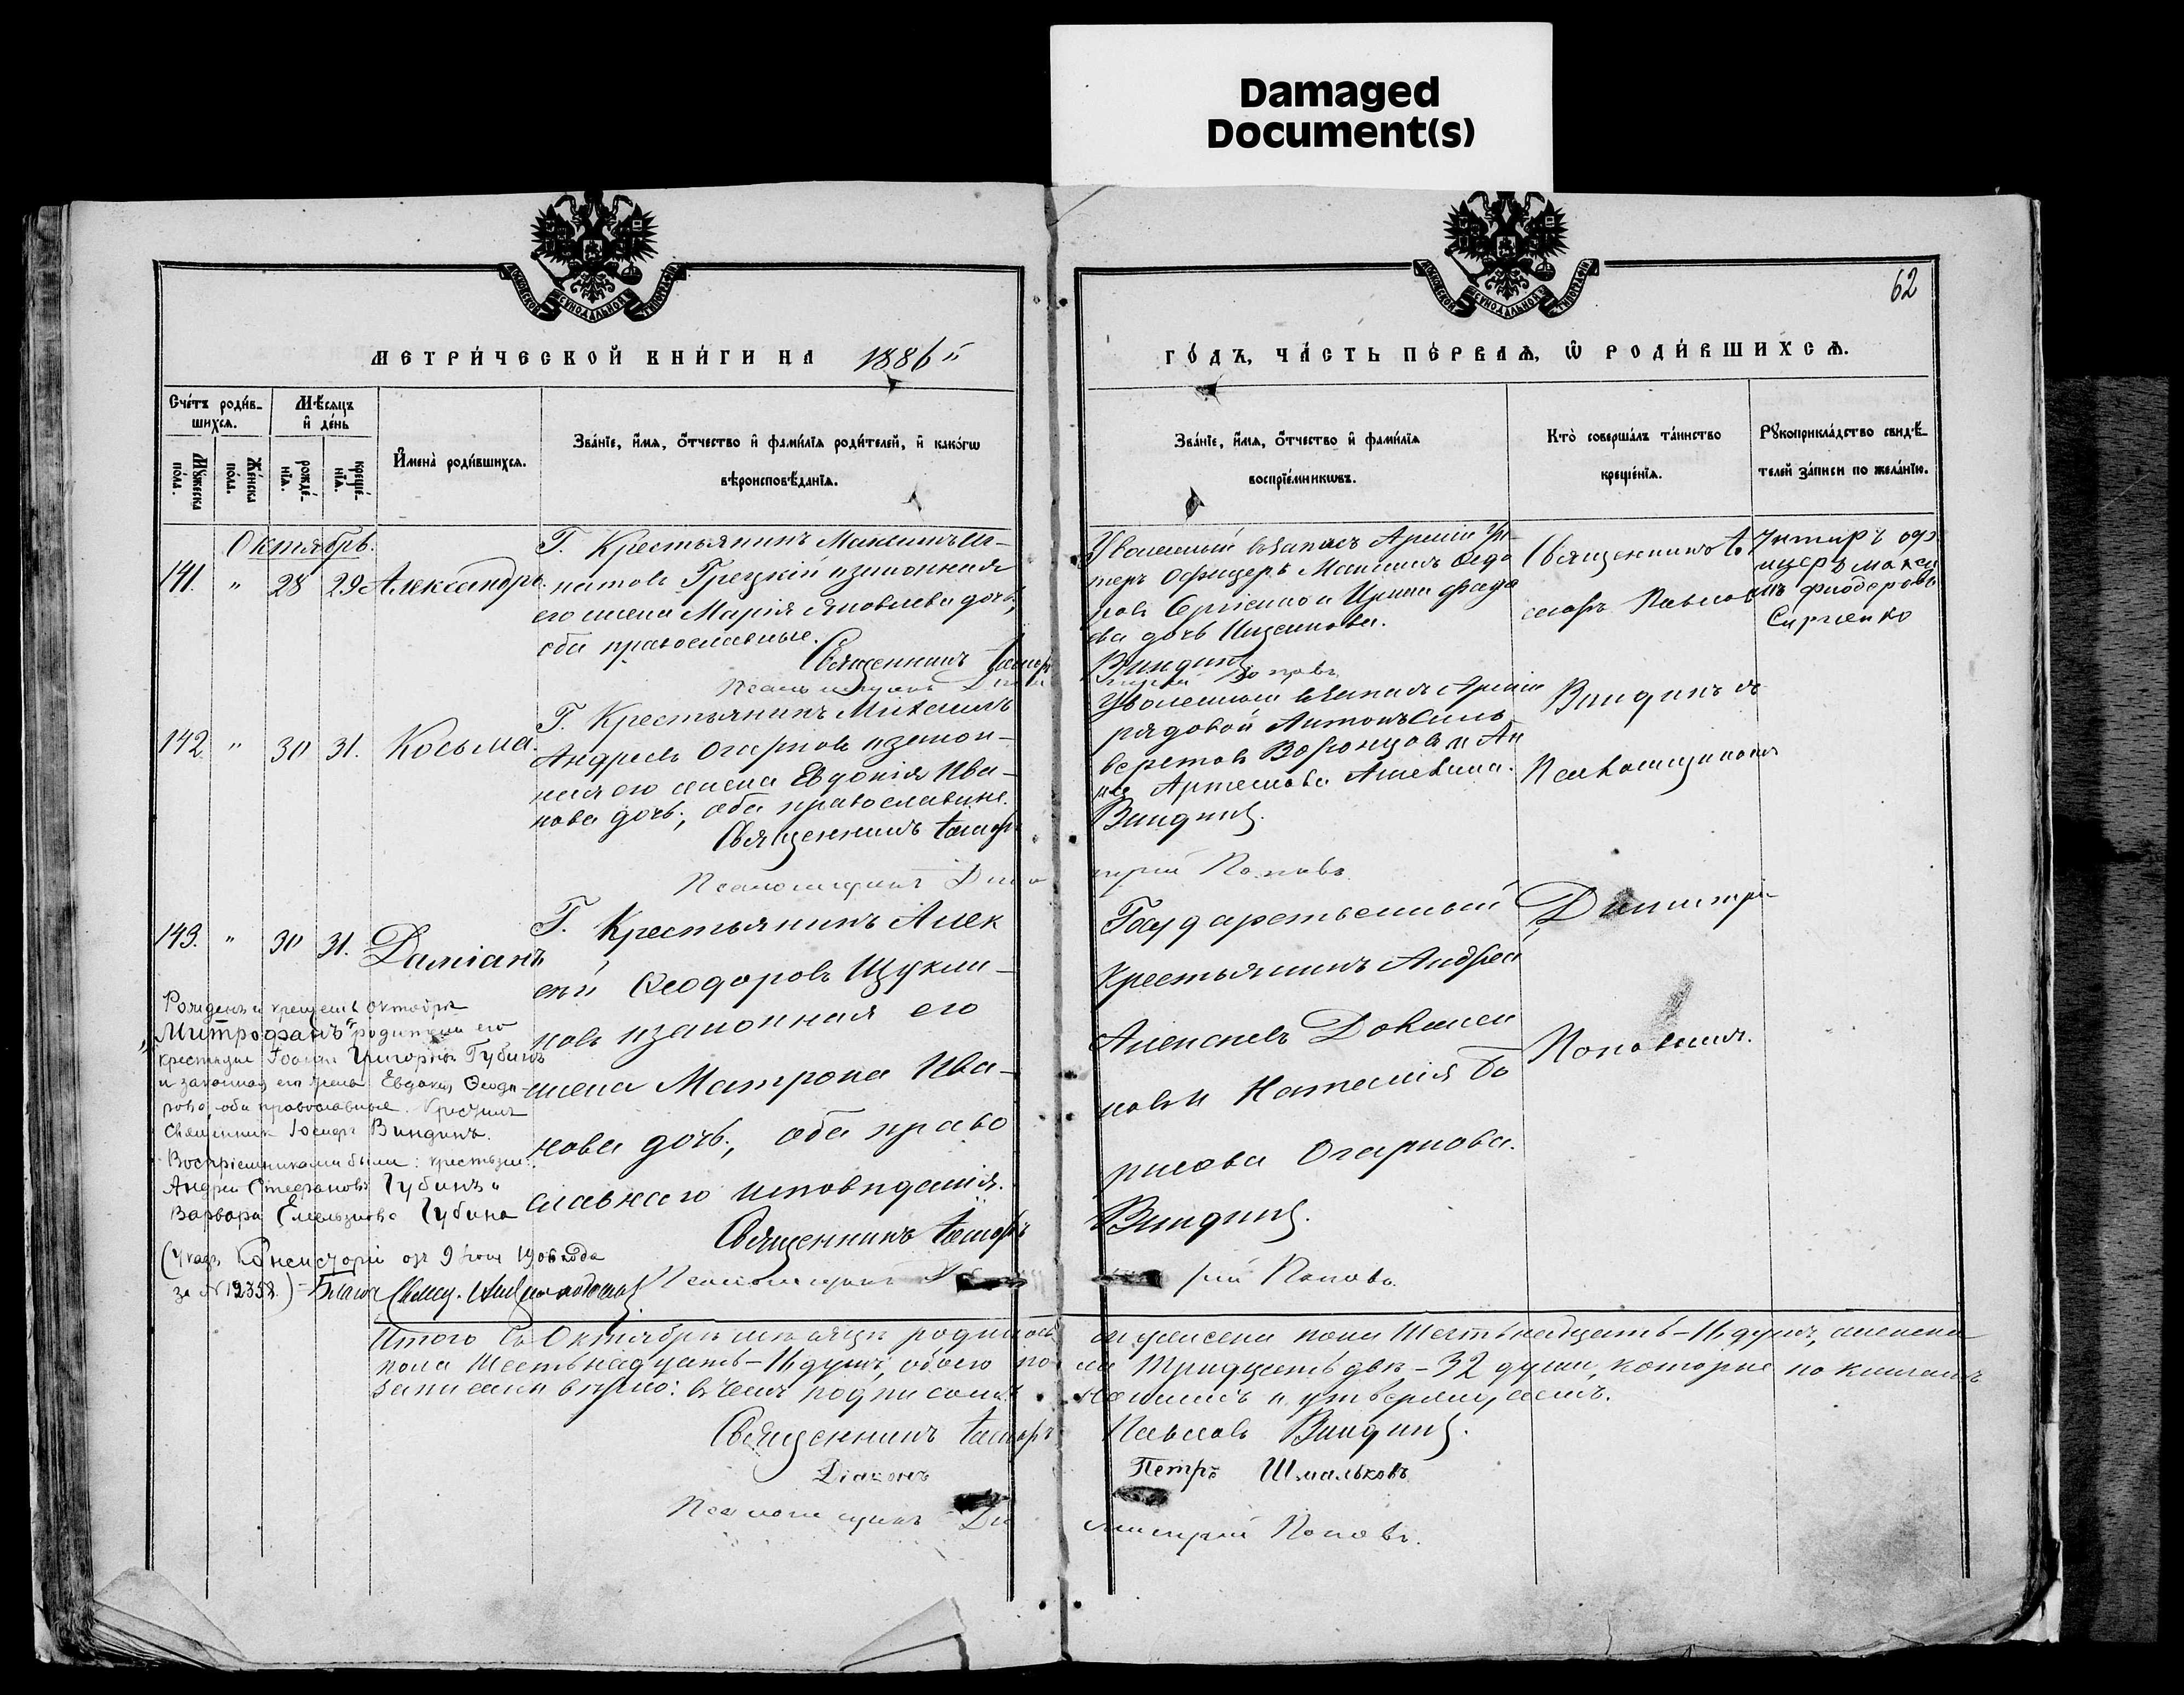 Damaged
Document(s)
МОСКОВСКОЙ СѴНОДАЛЬНОЙ ТИПОГРАФІИ
МОСКОВСКОЙ СѴНОДАЛЬНОЙ ТИПОГРАФІИ
62
МЕТРИ́ЧЕСКОЙ КНИ́ГИ НА 1886 й
ГО́ДЪ, ЧА́СТЬ ПЕ́РВАѦ, Ѡ РОДИ́ВШИХСѦ.
Сче́тъ роди́в-
шихсѧ.
Мꙋ́жеска по́ла.
Же́нска по́ла.
Мѣ́сѧцъ
и҆ де́нь
рожде́-
нїѧ.
креще́-
нїѧ.
И҆мена̀ роди́вшихсѧ.
Зва́нїе, и҆́мѧ, ѻ҆́тчество и҆ фамі́лїѧ роди́телей, и҆ како́гѡ
вѣроисповѣ́данїѧ.
Зва́нїе, и҆́мѧ, ѻ҆́тчество и҆ фамі́лїѧ
воспрїе́мникѡвъ.
Кто̀ соверша́лъ та́инство
креще́нїѧ.
Рꙋкоприкла́дство свидѣ́-
телей за́писи по жела́нїю.
Октябрь.
141. " 28 29 Александръ.
Г. Крестьянинъ Максимъ Иг-
натовъ Грецкій и законная
его жена Марія Яковлева дочь,
оба православные.
Священникъ Іосифъ
Виндингъ
Псаломщикъ Дими
трій Поповъ
Уволенный въ запасъ Арміи Ун-
теръ Офицеръ Максимъ Ѳедо
ровъ Сергиенко и
ва дочь
Священникъ Іо
сифъ Павлов
Унтиръ оф
ицеръ макси
мъ фиодоровъ
Сиргиенко
142. " 30 31. Косьма.
Г. Крестьянинъ Михаилъ
Андреевъ Огарковъ и закон-
ная его жена Евдокія Ива-
нова дочь, оба православные.
Священникъ Іосифъ
Виндингъ.
Псаломщикъ Дими
трій Поповъ
Уволенный въ запасъ Арміи
рядовой Антонъ Силь
верстовъ Воронцовъ и Ан
на Артемова
Виндингъ съ
Псаломщикомъ
143. " 30 31. Даміанъ
Г. Крестьянинъ Алек
сѣй Ѳеодоровъ Щукли-
новъ и законная его
жена Матрона Ива-
нова дочь, оба право
славнаго исповѣданія.
Священникъ Іосифъ
Виндингъ.
Псаломщикъ
рій Поповъ.
Государственный
Крестьянинъ Андрей
Алексѣевъ
новъ и Наталія Бо
рисова Огаркова.
Димитрі
Поповымъ.
Рожденъ и крещенъ Октября
„Митрофанъ" родители его
крестьяне Іоаннъ Григорьевъ Губинъ
и законная его жена Евдокія Ѳеодо-
рова, оба православные. Крестилъ
Священникъ Іосифъ Виндингъ.
Воспріемниками были: крестьяне:
Андрей Стефановъ Губинъ и
Варвара Емельянова Губина
(Указъ Консисторіи отъ 9 Іюня 1906 года
за № 12358.) – Благоч. Свящ.
Итого въ Октябрѣ мѣсяцѣ родилось мужеска пола Шестьнадцать – 16 душъ, женска
пола Шестьнадцать – 16 душъ, обоего пола Тридцать двѣ – 32 души, которые по книгамъ
записаны вѣрно: въ чемъ подписомъ и утверждаемъ.
Священникъ Іосифъ Павловъ Виндингъ.
Діаконъ Петръ Шмальковъ
Псаломщикъ Димитрій Поповъ.